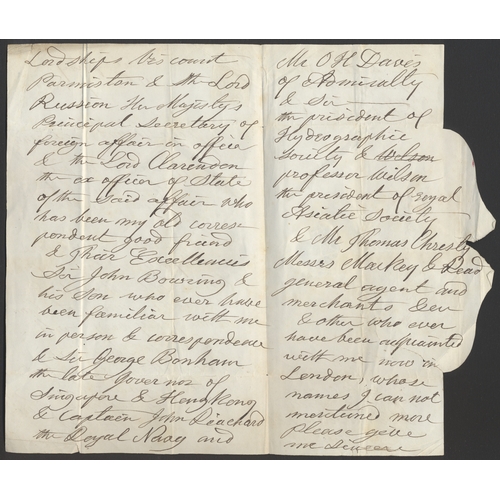 Lordships Viscount
Parmiston & the Lord
Russion Her Majesty's
Principal Secretary of
foreign affair in office
& the Lord Clarendon
the ex officer of State
of the said affair who
has been my old corres-
pondent good friend
& their Excellencies
Sir John Bowring &
his Son who ever have
been familiar with me
in person & correspondence
& Sir George Bonham
the late Governor of
Singapore & Hongkong
& Captain John
the Royal Navy and
Mr O H Davis
of Admiralty
& Sir —
the president of
Hydrographic
Society & Wilson
professor Wilson
the president of royal
Asiatic Society
& Mr Thomas Christy
Messrs Mackey & Read
general agent and
merchants &
& other who ever
have been acquainted
with me now in
London, whose
names I can not
mentained more
please give
me sincere